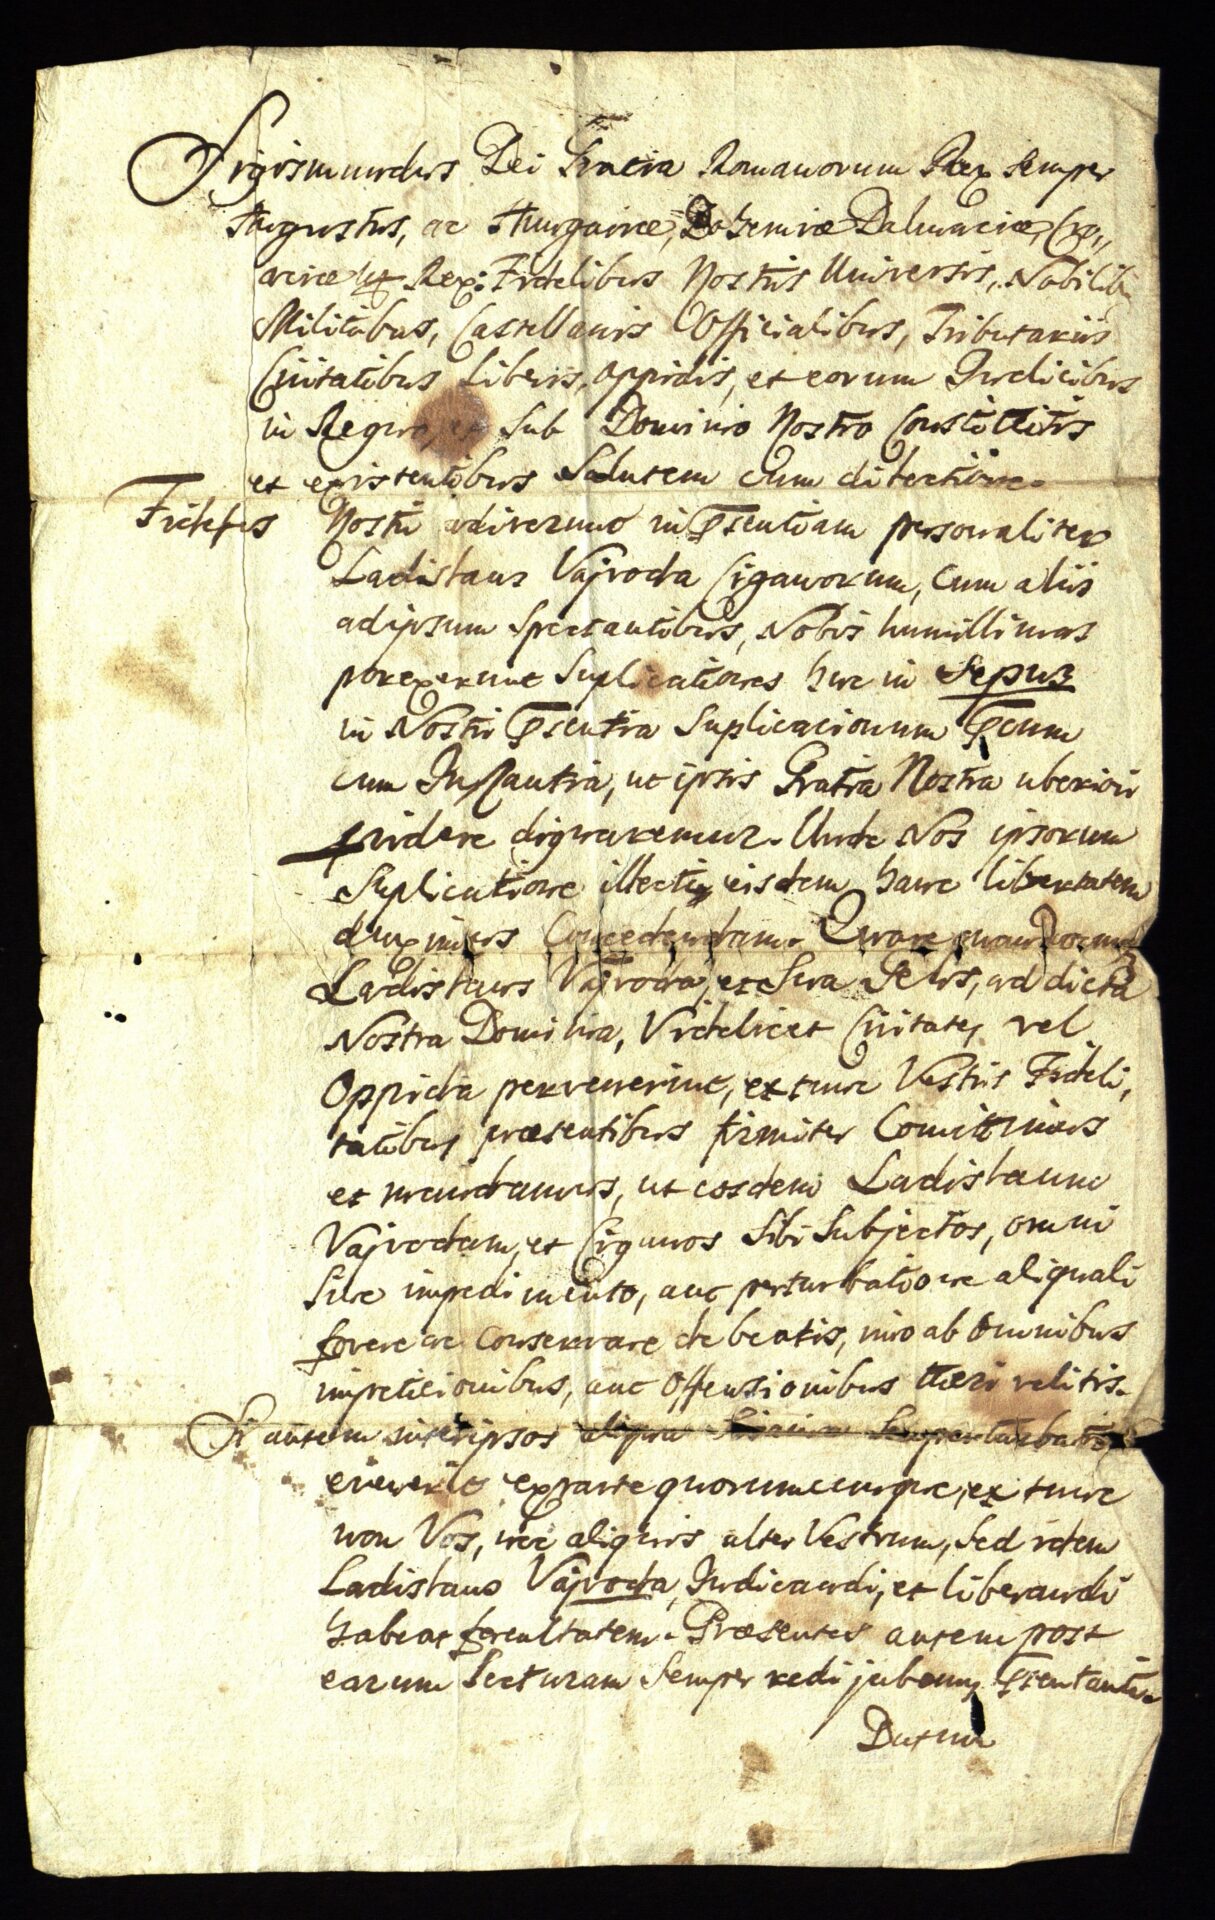 Sigismundus Dei Gratia Romanorum Rex Semper
Augustus, ac Hungariae, Bohemiae Dalmaciae, Cro„
aciae Rex: Fidelibus Nostris Universis, Nobilib,
Militibus, Castellanis Officialibus, Tributariis
Civitatibus Liberis, Oppidis, et eorum Judicibus
in Regno, et Sub Dominio Nostro Constitutis
et existentibus Salutem cum dilectione.
Fideles Nostri adiverunt in Psentiam personaliter
Ladislaus Vajvoda Ciganorum, Cum aliis
ad ipsum Spectantibus, Nobis humillimas
porexerunt Suplicationes huc in Sepus
in Nostri Psentia Suplicacionum Pcum
cum Instantia, ut ipsis Gratia Nostra uberiori
pvidere dignaremur. Unde Nos ipsorum
Suplicatione illecti, eisdem hanc libertatem
duximus Concedendam. Quare quandocunq
Ladislaus Vajvoda, et Sua Gens, ad dicta
Nostra Dominia, Videlicet Civitates, vel
Oppida pervenerint, ex tunc Vestris Fideli,
tatibus praesentibus firmiter Comittimus
et mandamus, ut eosdem Ladislaum
Vajvodam, et Ciganos Sibi Subjectos, omni
Sine impedimento, aut perturbatione aliquali
fovere ac Conservare debeatis, imo ab Omnibus
impeticionibus, aut Offensionibus tueri velitis.
Si autem inter ipsos aliqua Zizania Seu perturbatio
evenerit ex parte quorumcunque, ex tunc
non Vos, nec aliquis alter Vestrum, Sed idem
Ladislaus Vajvoda, Judicandi, et liberandi
habeat facultatem. Praesentes autem post
earum Lecturam Semper redi jubemus Psentanti.
Datum